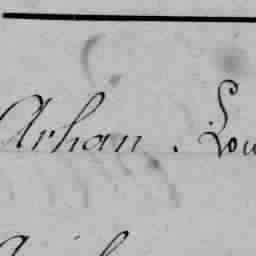 Arhan. Lou